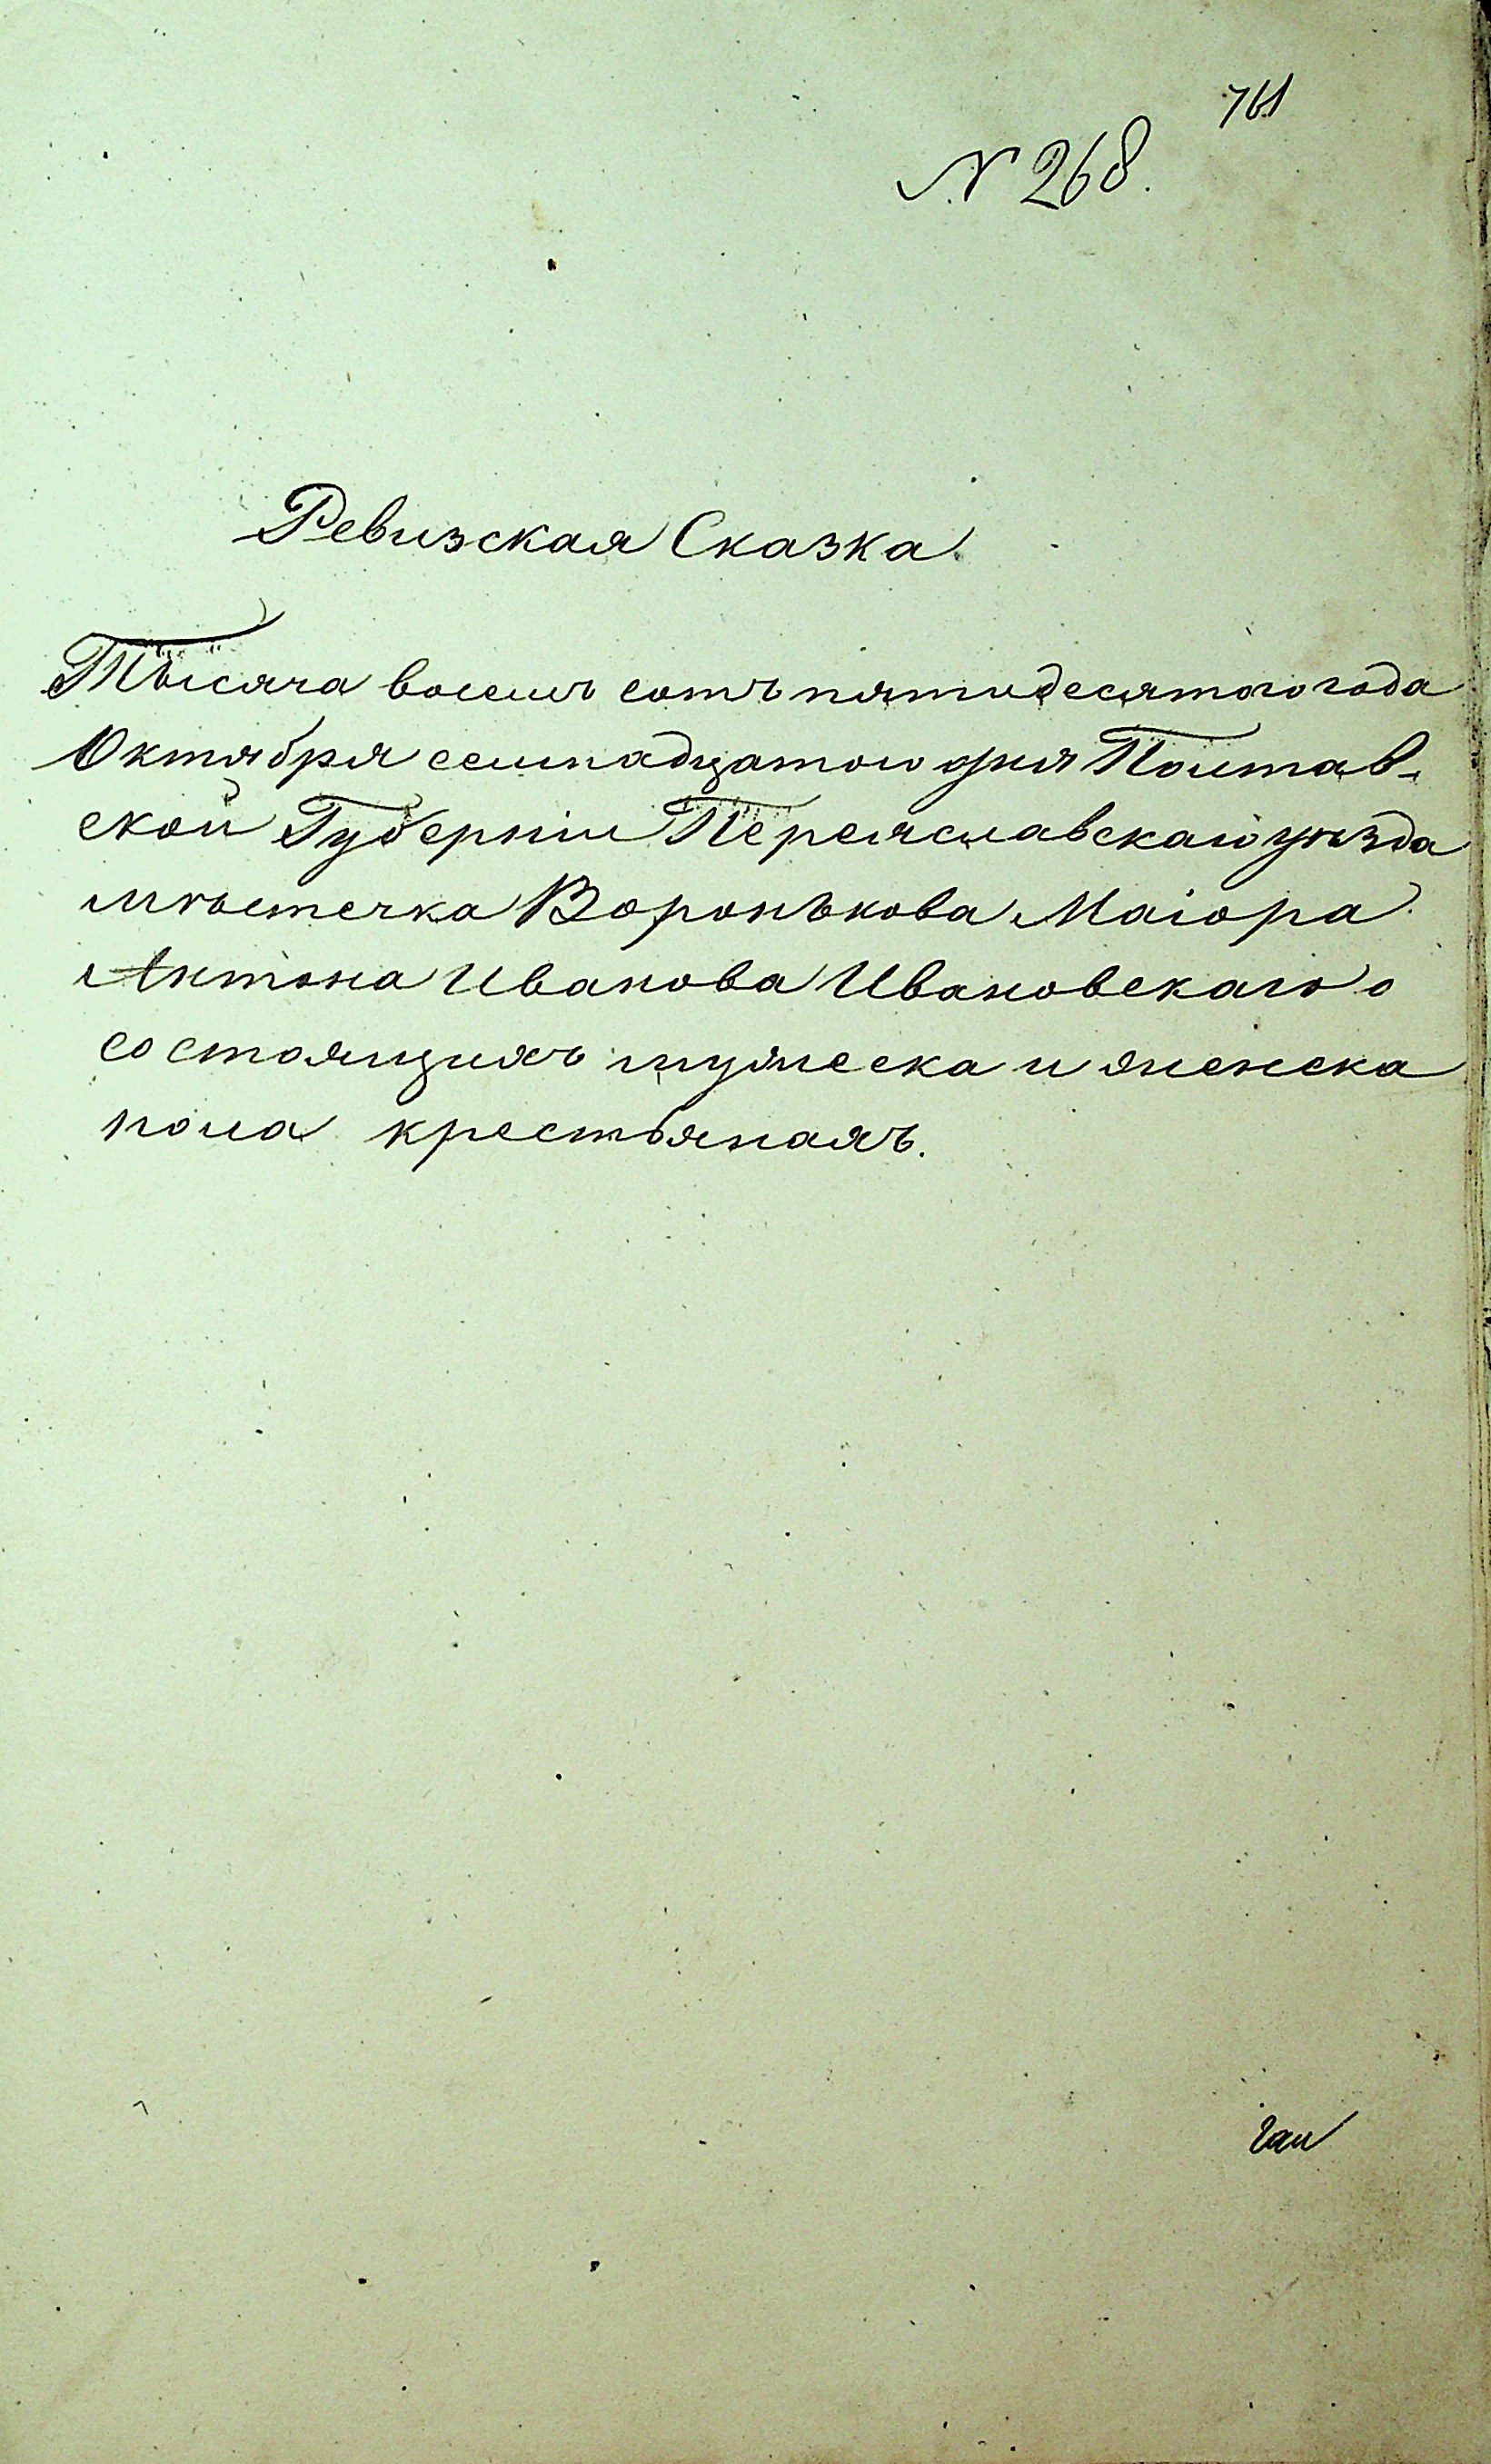 761
№ 268.
Ревизская Сказка
Тысяча восемь сотъ пятидесятого года
Октября семнадцатого дня Полтав-
ской Губерніи Переяславскаго уѣзда
мѣстечка Воронькова Маіора
Антона Иванова Ивановскаго о
состоящихъ мужеска и женска
пола крестьянахъ.